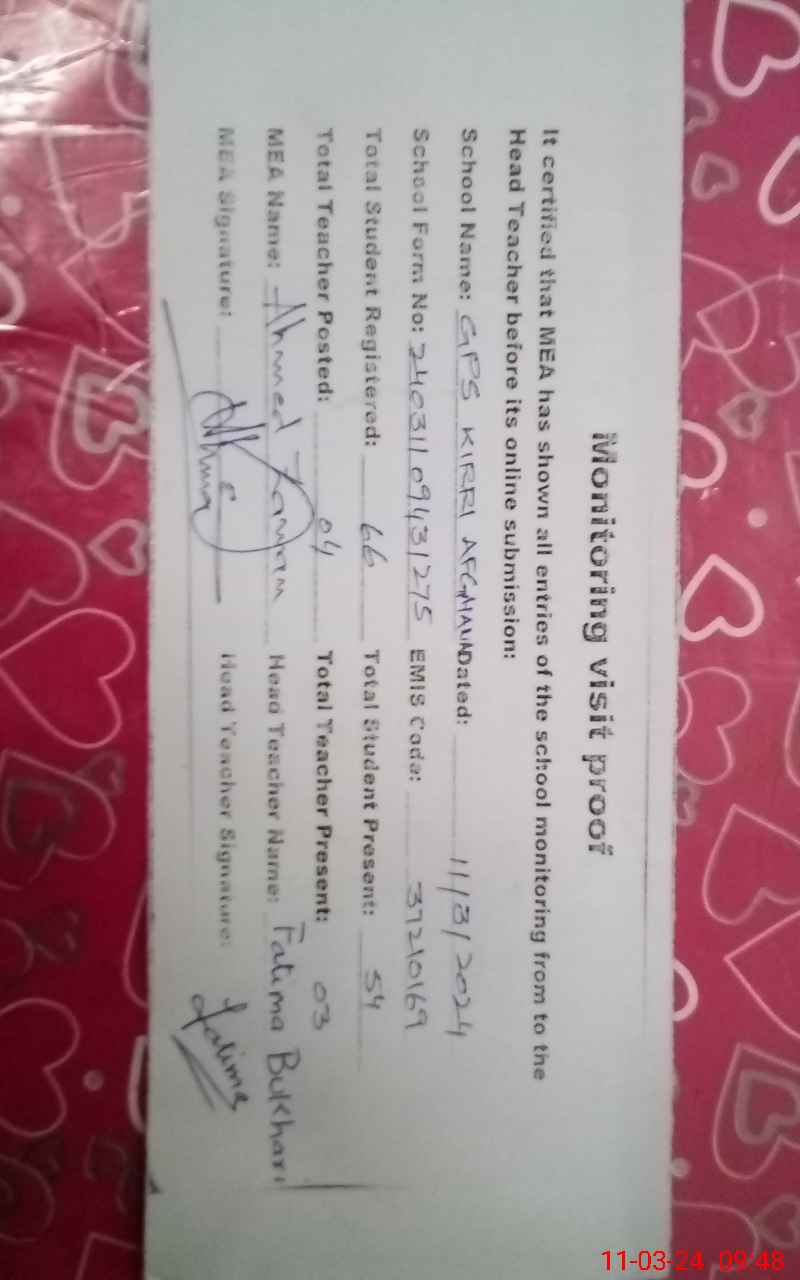 Monitoring visit proof
It certified that MEA has shown all entries of the school monitoring from to the
Head Teacher before its online submission:
School Name: GPS KIRRI AFGHANAN Dated: 11/3/2024
School Form No: 24031109431275 EMIS Code: 37210169
Total Student Registered: 66 Total Student Present: 54
Total Teacher Posted: 04 Total Teacher Present: 03
MEA Name: Ahmed Zaman Head Teacher Name: Fatima Bukhari
MEA Signature: Ahmed Head Teacher Signature: Fatima
11-03-24 09:48